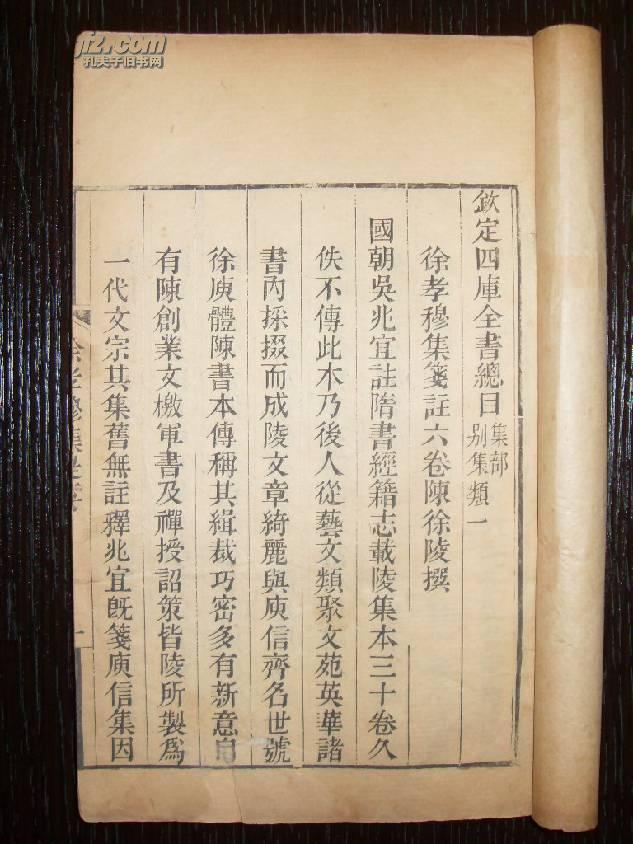 欽定四庫全書總目 集部
别集類一
徐孝穆集箋註六卷陳徐陵撰
國朝吳兆宜註隋書經籍志載陵集本三十卷久
佚不傳此本乃後人從藝文類聚文苑英華諸
書內採掇而成陵文章綺麗與庾信齊名世號
徐庾體陳書本傳稱其緝裁巧密多有新意自
有陳創業文檄軍書及禪授詔策皆陵所製為
一代文宗其集舊無註釋兆宜既箋庾信集因
徐孝穆集
一
jfz.com
孔夫子旧书网